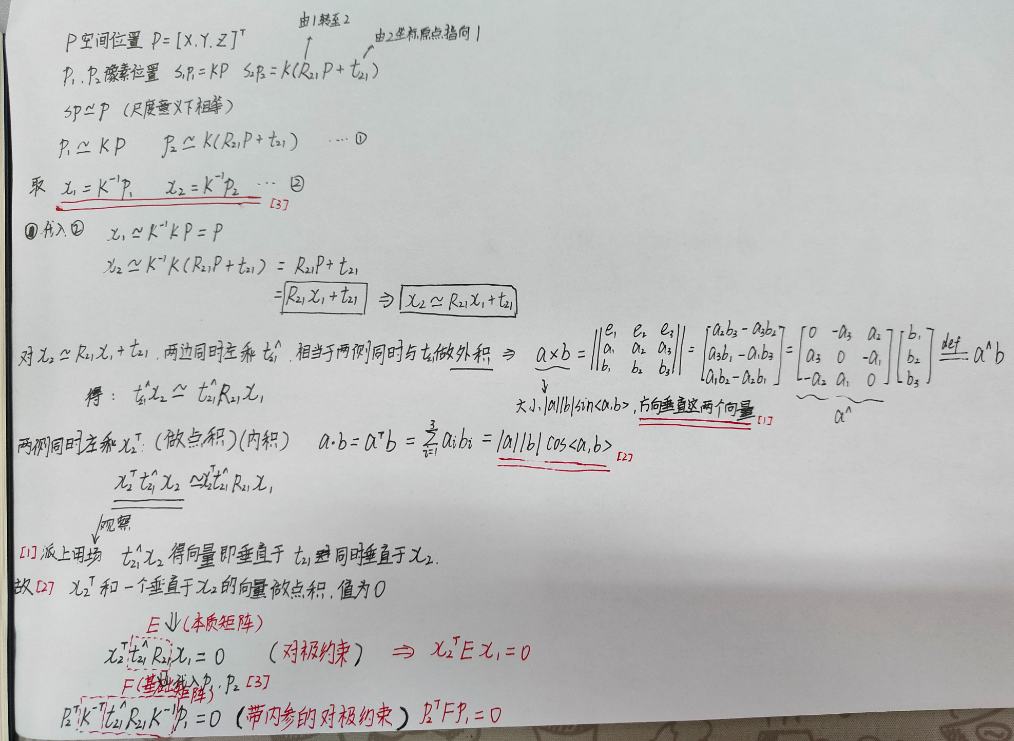 由1转至2
由2坐标原点指向1
P空间位置 P=[X.Y.Z]ᵀ
P₁.P₂像素位置 S₁P₁=KP S₂P₂=K(R₂₁P+t₂₁)
SP≃P (尺度意义下相等)
P₁≃KP P₂≃K(R₂₁P+t₂₁) …①
取 x₁=K⁻¹P₁ x₂=K⁻¹P₂ …②
[3]
①代入② x₁≃K⁻¹KP=P
x₂≃K⁻¹K(R₂₁P+t₂₁)=R₂₁P+t₂₁
=R₂₁x₁+t₂₁ ⇒ x₂≃R₂₁x₁+t₂₁
对x₂≃R₂₁x₁+t₂₁.两边同时左乘t₂₁^.相当于两侧同时与t₂₁做外积 ⇒ a×b=||e₁ e₂ e₃; a₁ a₂ a₃; b₁ b₂ b₃||=[a₂b₃-a₃b₂; a₃b₁-a₁b₃; a₁b₂-a₂b₁]=[0 -a₃ a₂; a₃ 0 -a₁; -a₂ a₁ 0][b₁; b₂; b₃] def= a^b
得: t₂₁^x₂≃t₂₁^R₂₁x₁
大小|a||b|sin<a,b>,方向垂直这两个向量[1]
a^
两侧同时左乘x₂ᵀ:(做点积)(内积) a·b=aᵀb=∑³ᵢ₌₁aᵢbᵢ=|a||b|cos<a,b>[2]
x₂ᵀt₂₁^x₂≃x₂ᵀt₂₁^R₂₁x₁
观察
[1]派上用场 t₂₁^x₂得向量即垂直于t₂₁同时垂直于x₂.
故[2] x₂ᵀ和一个垂直于x₂的向量做点积,值为0
E⇓(本质矩阵)
x₂ᵀt₂₁^R₂₁x₁=0 (对极约束) ⇒ x₂ᵀEx₁=0
F(基础矩阵)
代入P₁.P₂[3]
P₂ᵀK⁻ᵀt₂₁^R₂₁K⁻¹P₁=0 (带内参的对极约束) P₂ᵀFP₁=0